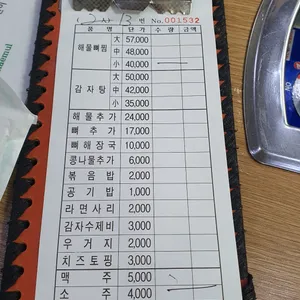 (2사) 13번 No.001532
품명 단가 수량 금액
해물뼈찜 大 57,000
中 48,000
小 40,000
감자탕 大 50,000
中 42,000
小 35,000
해물추가 24,000
뼈추가 17,000
뼈해장국 10,000
콩나물추가 6,000
볶음밥 2,000
공기밥 1,000
라면사리 2,000
감자수제비 3,000
우거지 2,000
치즈토핑 3,000
맥주 5,000
소주 4,000